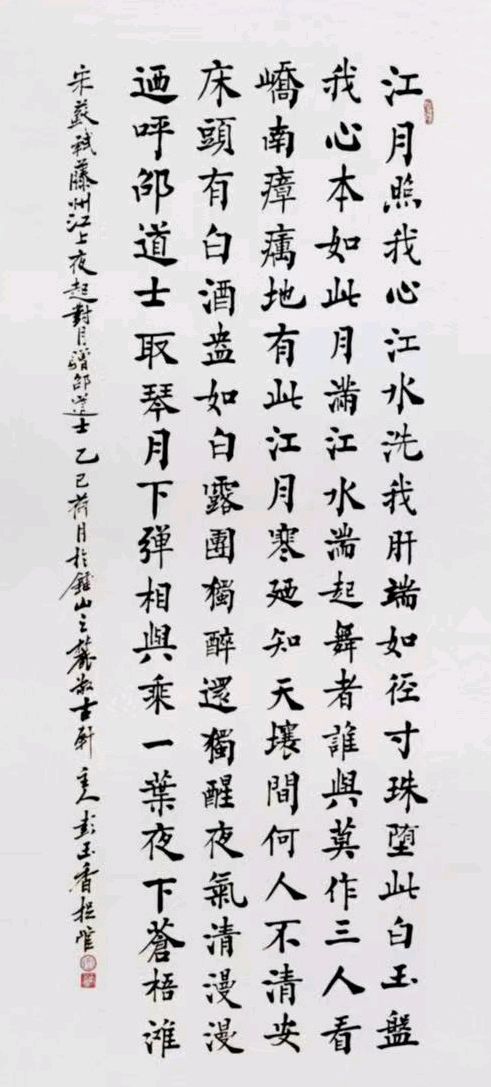 江月照我心江水洗我肝端如径寸珠堕此白玉盤
我心本如此月滿江水湍起舞者誰與莫作三人看
嶠南瘴癘地有此江月寒廼知天壤間何人不清安
床頭有白酒盎如白露團獨醉還獨醒夜氣清漫漫
迺呼邵道士取琴月下彈相與乘一葉夜下蒼梧滩
宋蘇軾藤州江上夜起對月贈邵道士 乙巳荷月於鍾山之麓古軒主人彭玉香